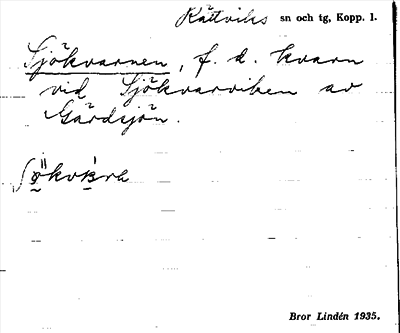 Rättviks sn och tg, Kopp. l.
Sjökvarnen, f. d. kvarn
vid Sjökvarviken av
Gärdsjön.
Bror Lindén 1935.